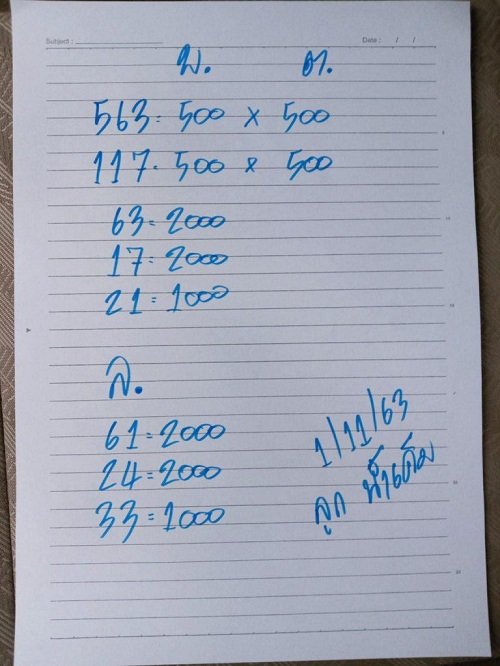 Subject : Date : / /
บ. ต.
563 = 500 x 500
117 = 500 x 500
63 = 2000
17 = 2000
21 = 1000
ล.
61 = 2000
24 = 2000
33 = 1000
1/11/63
ลูก